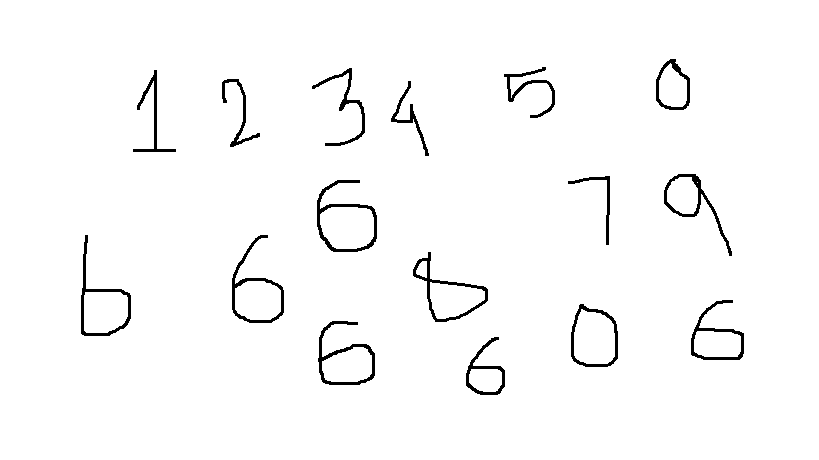 1 2 3 4 5 0
6 7 9
6 6 8 0 6
6 6